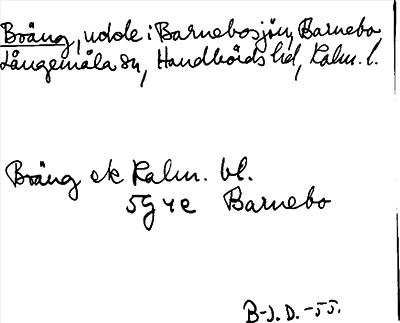 Bräng, udde i Barnebosjön, Barnebo,
Långemåla sn, Handbörds hd, Kalm. l.
Bräng ek Kalm. bl.
5G 4e Barnebo
B-J. D. -55.